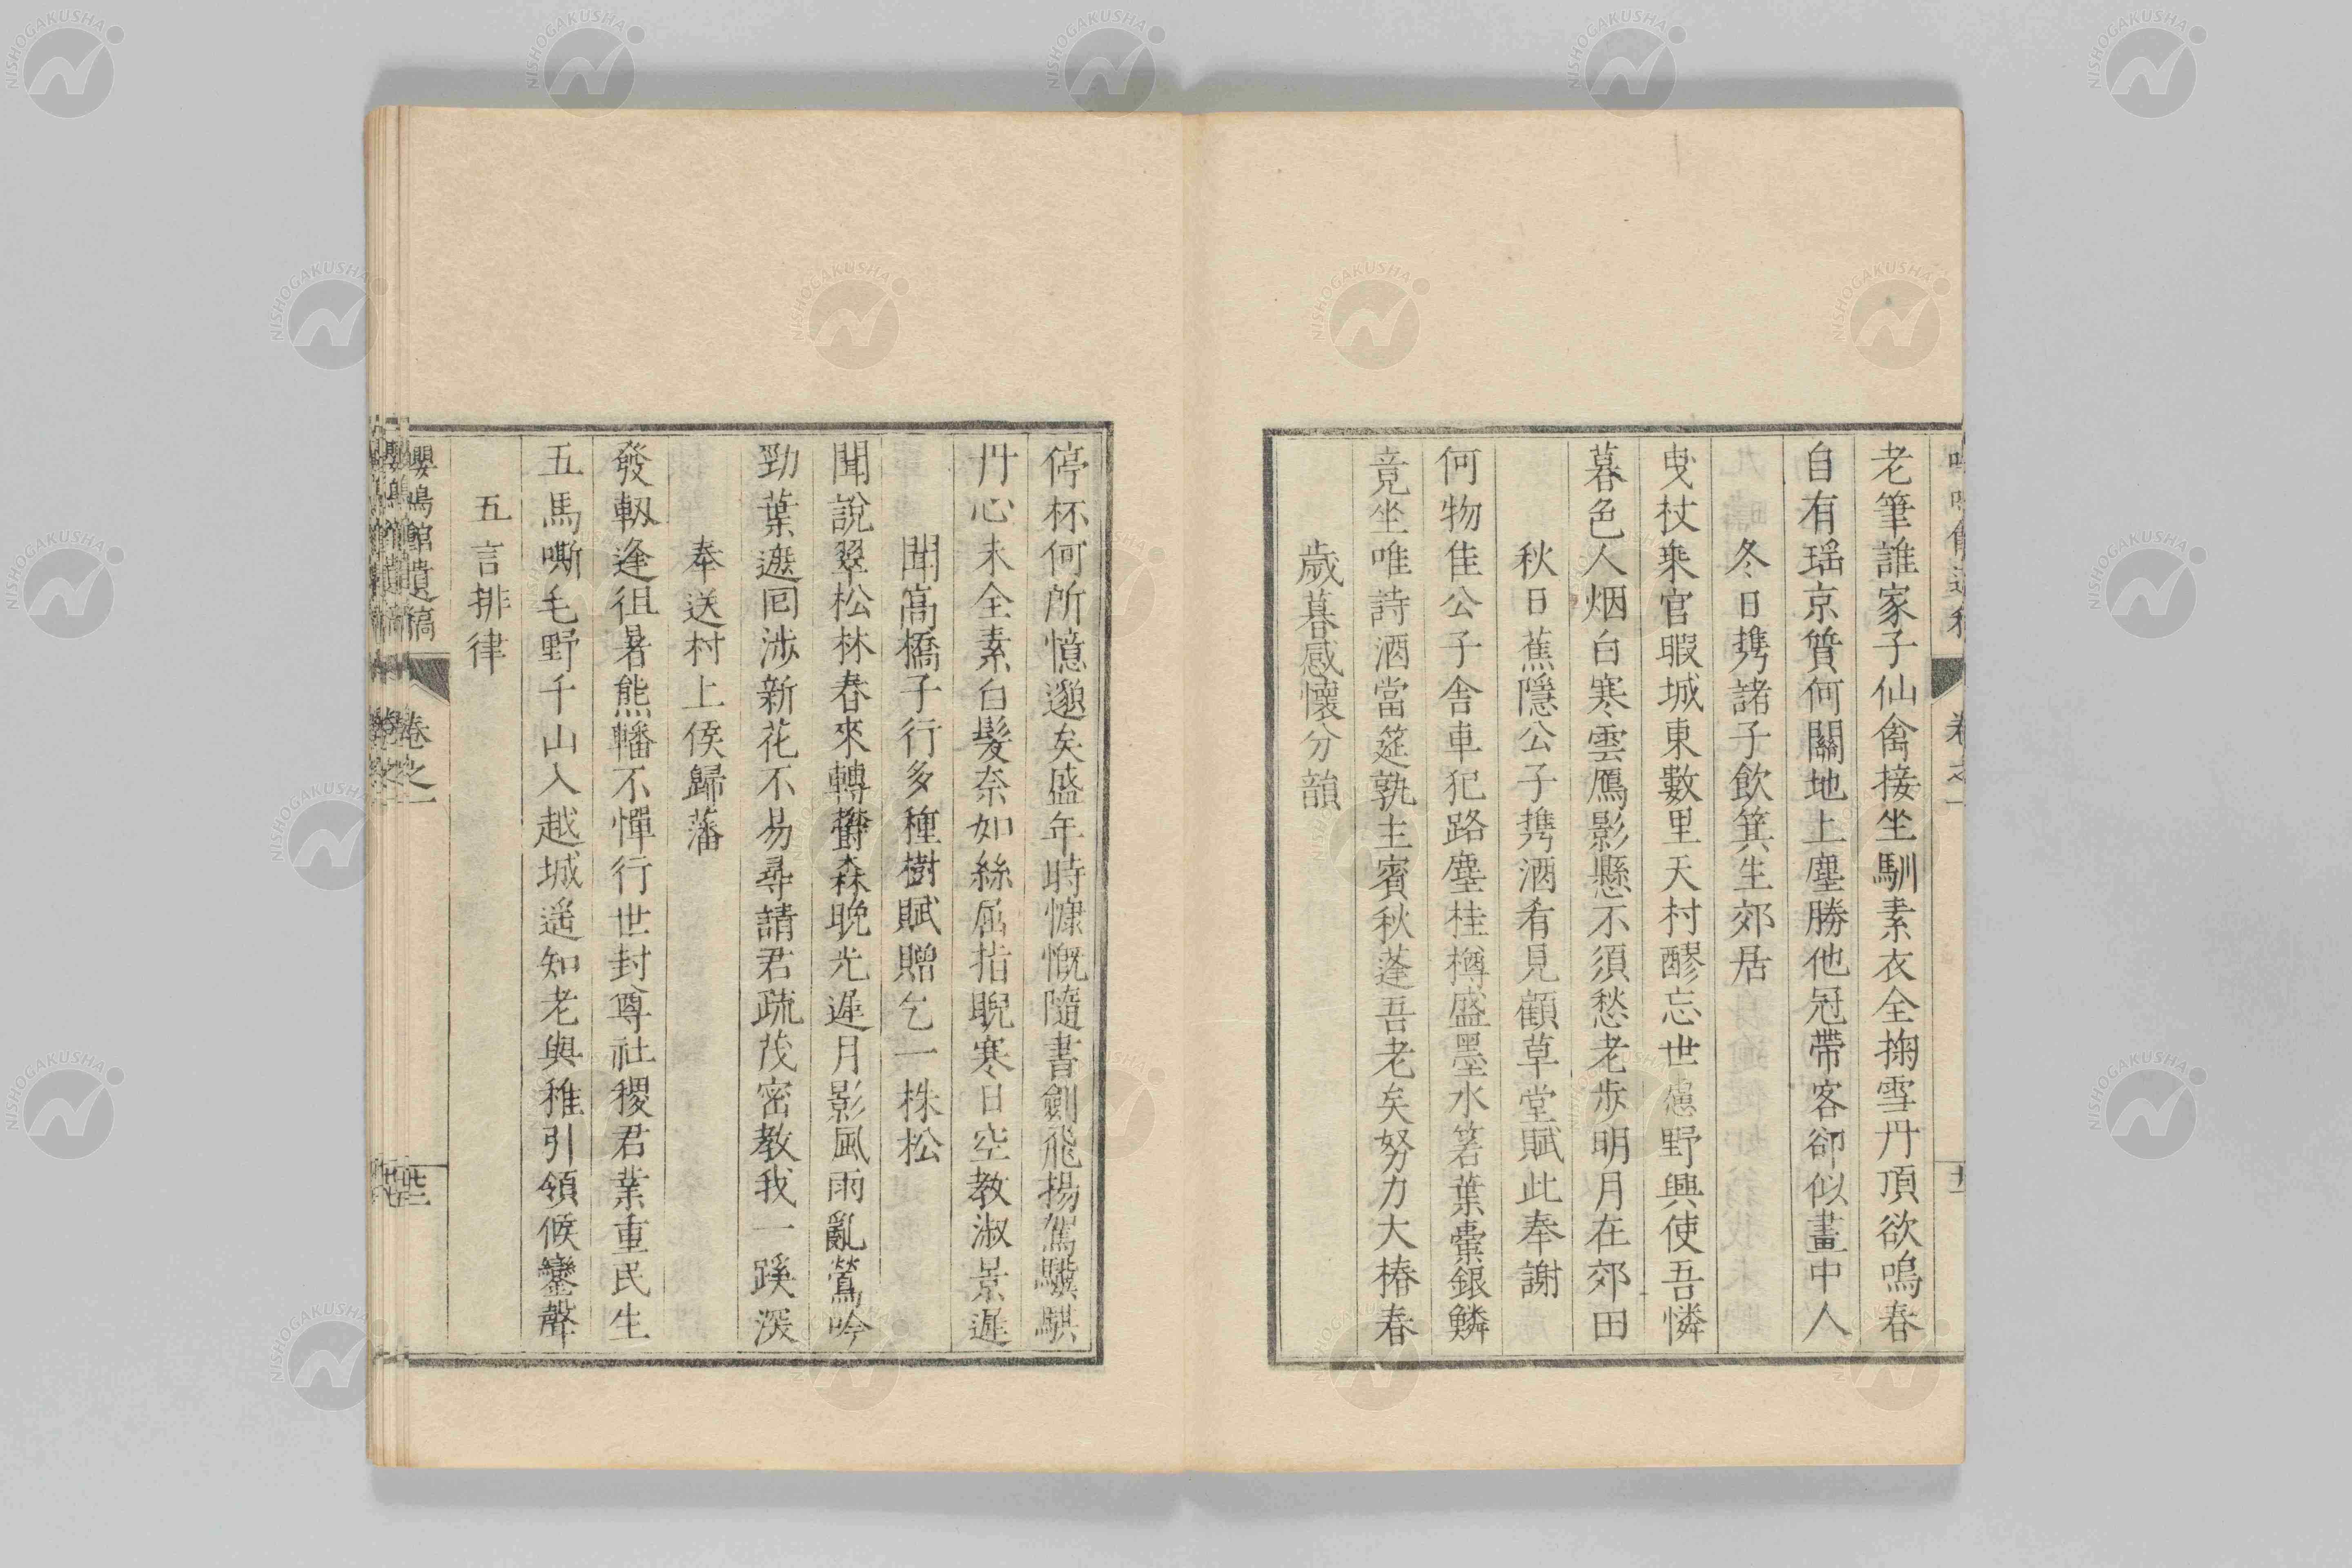 老筆誰家子仙禽接坐馴素衣全掬雪丹頂欲鳴春
自有瑶京質何關地上塵勝他冠帶客卻似畫中人
冬日携諸子飲箕生郊居
曳杖乗官暇城東數里天村醪忘世慮野興使吾憐
暮色人烟白寒雲鴈影懸不須愁老歩明月在郊田
秋日蕉隱公子携酒肴見顧草堂賦此奉謝
何物佳公子舎車犯路塵桂樽盛墨水箬葉嚢銀鱗
竟坐唯詩酒當筵孰主賓秋蓬吾老矣努力大椿春
歳暮感懷分韻
停杯何所憶邈矣盛年時慷慨隨書劍飛揚駕驥騏
丹心未全素白髮奈如絲屈指睨寒日空教淑景遲
聞高橋子行多種樹賦贈乞一株松
聞說翠松林春來轉欝森晩光遲月影風雨亂鶯吟
勁葉遰囘渉新花不易尋請君疏茂密教我一蹊深
奉送村上侯歸藩
發軔逢徂暑熊轓不憚行世封尊社稷君業重民生
五馬嘶毛野千山入越城遥知老與稚引領候鑾聲
五言排律
嚶鳴館遺稿
卷之一